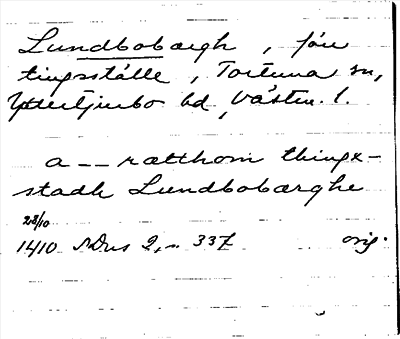 Lundbobærgh, förr
tingsställe, Tortuna sn,
Yttertjurbo hd, Västm. l.
a -- rætthom thingx-
stadh Lundbobærghe
28/10
1410 SDns 2, s. 337 orig.